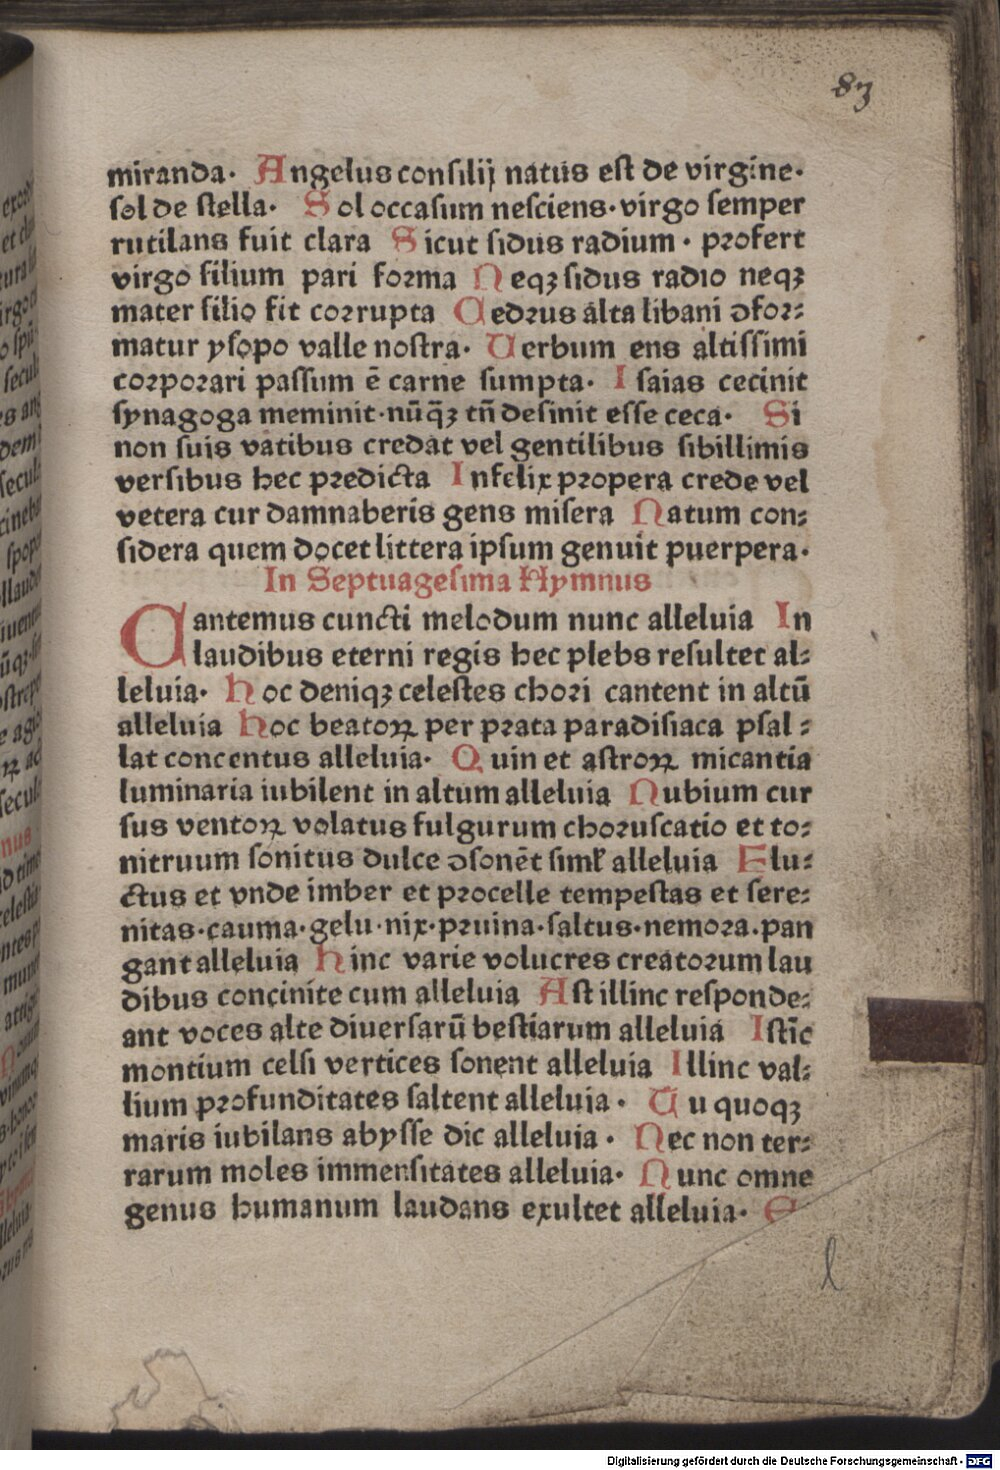 83
miranda. Angelus consilij natus est de virgine.
sol de stella. Sol occasum nesciens. virgo semper
rutilans fuit clara Sicut sidus radium. profert
virgo filium pari forma Neqꝫ sidus radio neqꝫ
mater filio fit corrupta Cedrus alta libani ꝯfor:
matur ysopo valle nostra. Verbum ens altissimi
corporari passum ē carne sumpta. Isaias cecinit
synagoga meminit. nūq̄ꝫ tñ desinit esse ceca. Si
non suis vatibus credat vel gentilibus sibillimis
versibus hec predicta Infelix propera crede vel
vetera cur damnaberis gens misera Natum con:
sidera quem docet littera ipsum genuit puerpera.
In Septuagesima Hymnus
Cantemus cuncti melodum nunc alleluia In
laudibus eterni regis hec plebs resultet al:
leluia. Hoc deniqꝫ celestes chori cantent in altū
alleluia Hoc beatoꝝ per prata paradisiaca psal:
lat concentus alleluia. Quin et astroꝝ micantia
luminaria iubilent in altum alleluia Nubium cur
sus ventoꝝ volatus fulgurum choruscatio et to:
nitruum sonitus dulce ꝯsonēt simł alleluia Flu:
ctus et vnde imber et procelle tempestas et sere:
nitas. cauma. gelu. nix. pruina. saltus. nemora. pan
gant alleluia Hinc varie volucres creatorum lau
dibus concinite cum alleluia Ast illinc responde:
ant voces alte diuersarū bestiarum alleluia Istīc
montium celsi vertices sonent alleluia Illinc val:
lium profunditates saltent alleluia. Tu quoqꝫ
maris iubilans abysse dic alleluia. Nec non ter:
rarum moles immensitates alleluia. Nunc omne
genus humanum laudans exultet alleluia. E
l
Digitalisierung gefördert durch die Deutsche Forschungsgemeinschaft - DFG